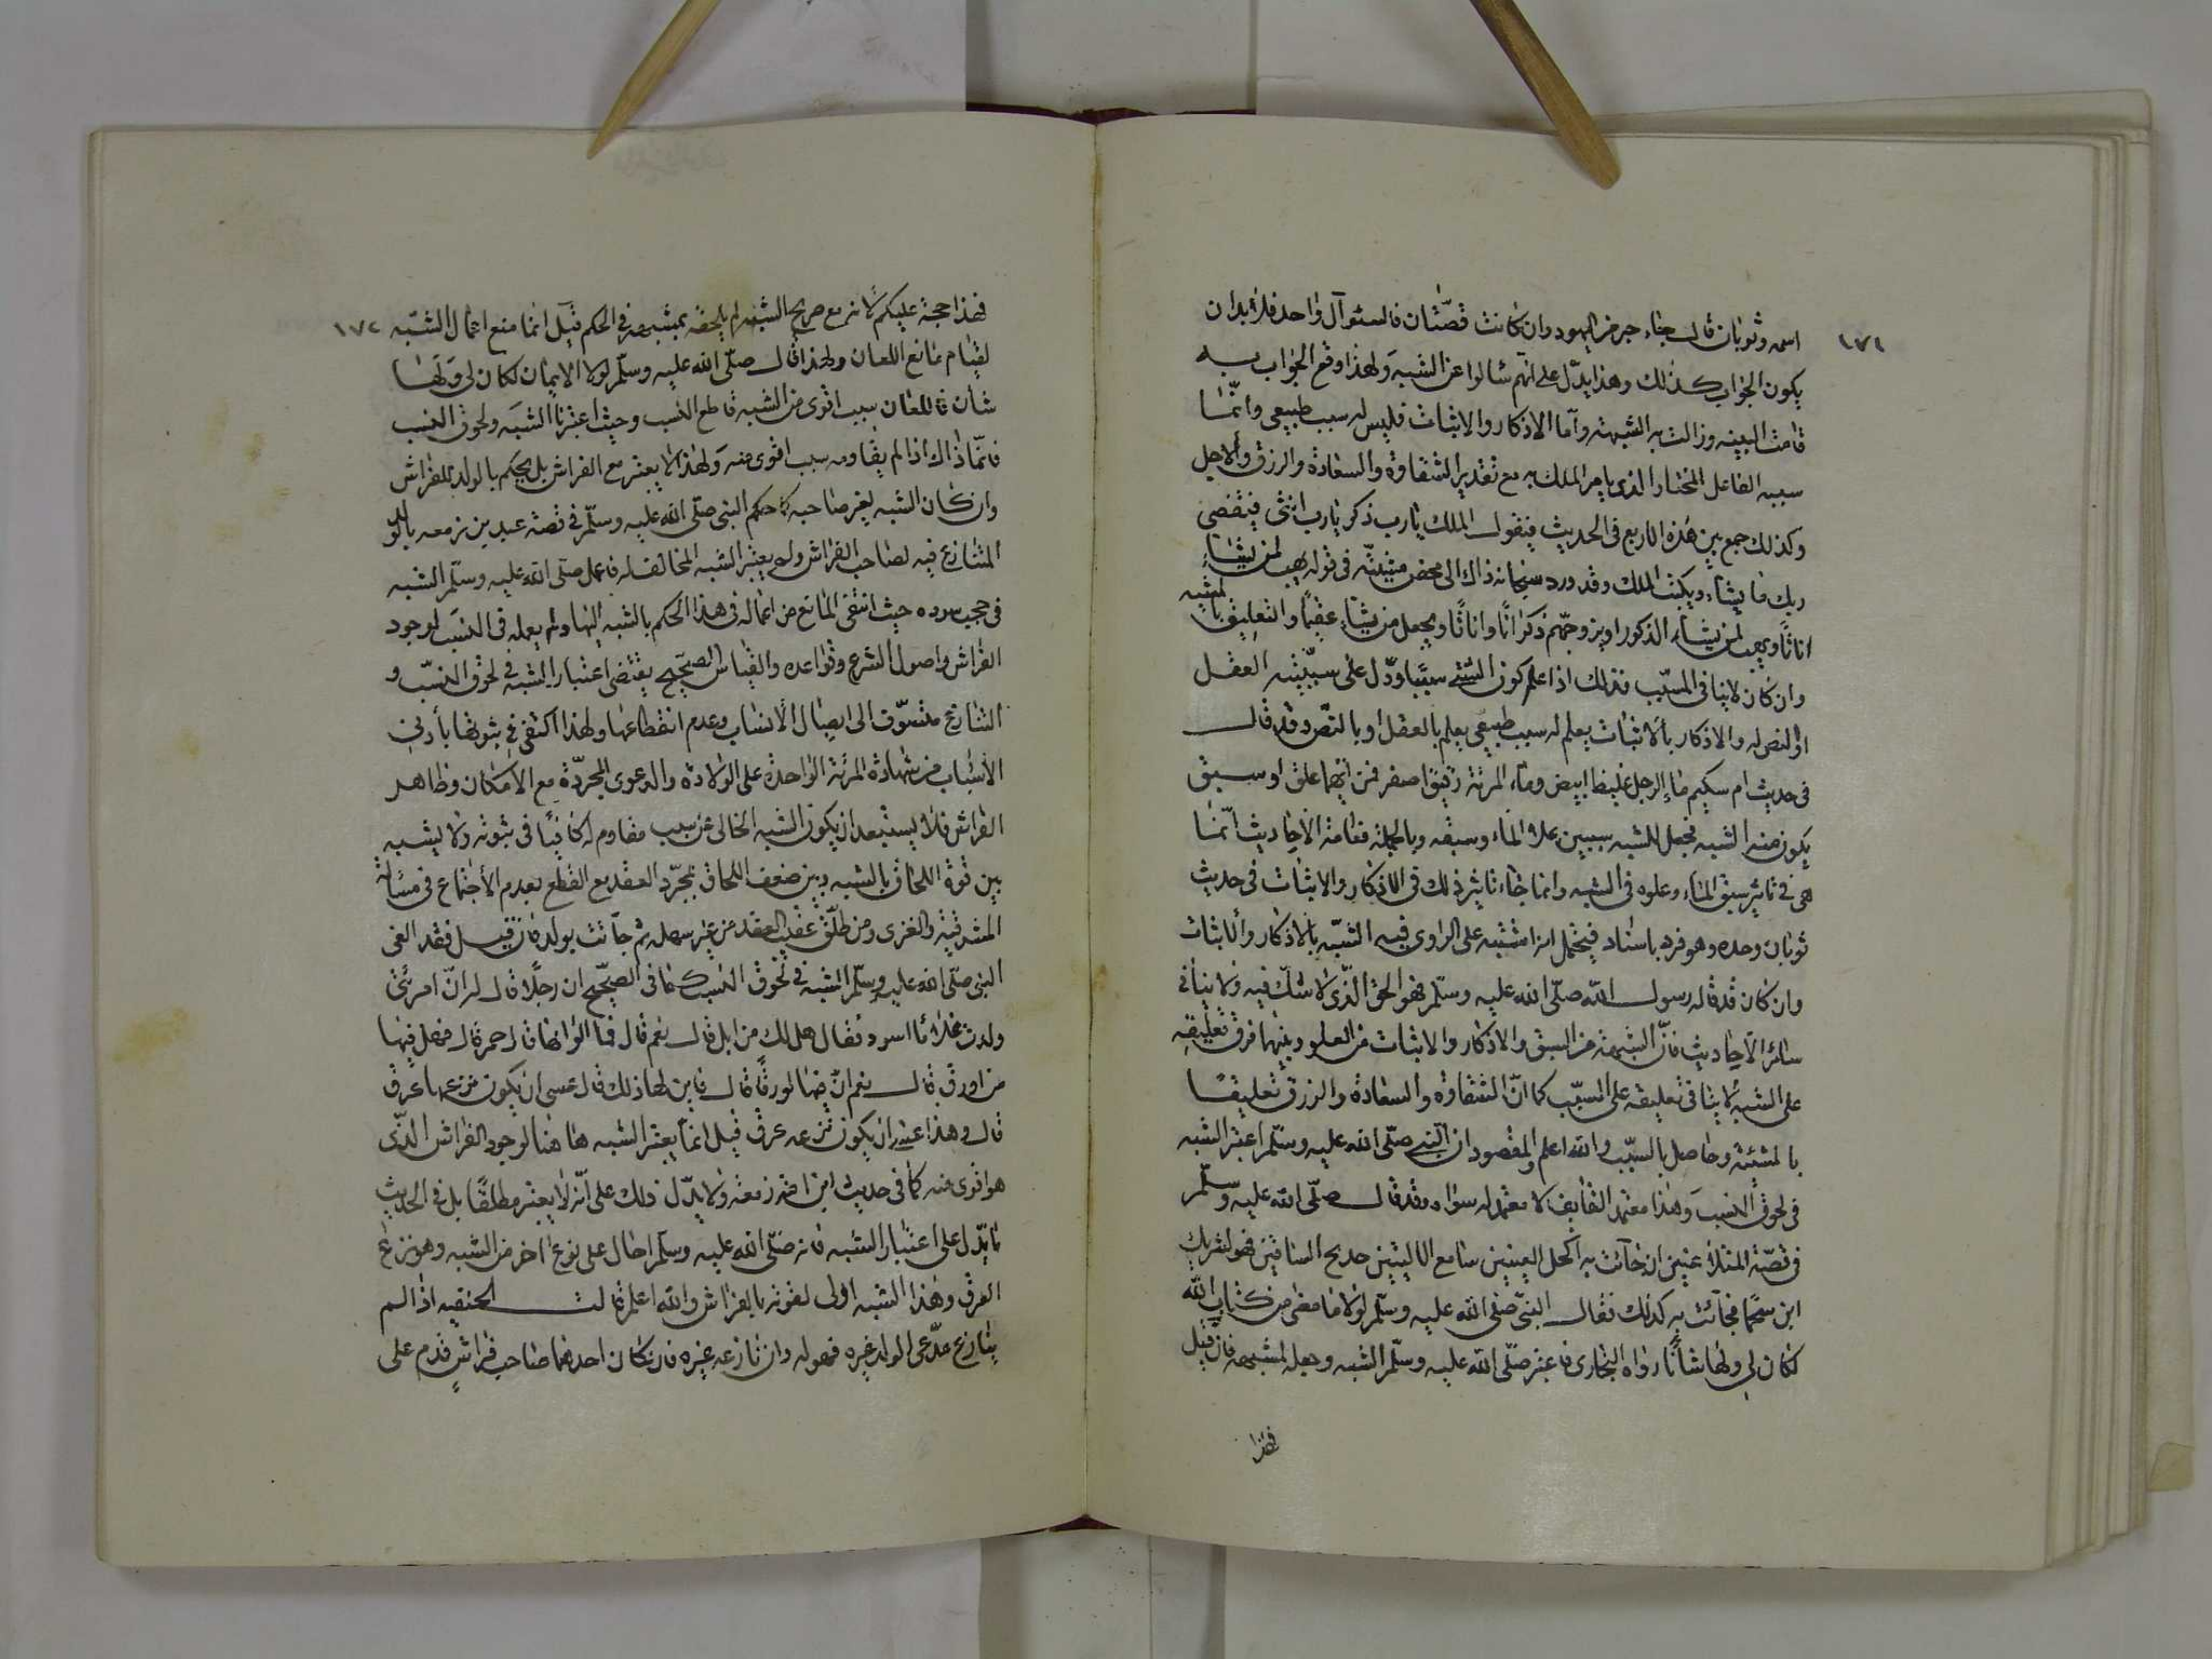 ١٧١
اسمه وثوبان قال جاء حبر من اليهود وان كانت قصتان فالسئوال واحد فلا بد ان
يكون الجواب كذلك وهذا يدل على انهم سألوا عن الشبه ولهذا وقع الجواب به
قامت البينه وزالت به الشبهة وأما الاذكار والايناث فليس له سبب طبيعي وانما
سببه الفاعل المختار الذي يامر الملك به مع تقدير الشقاوة والسعادة والرزق والاجل
وكذلك جمع بين هذه الاربع في الحديث فيقول الملك يارب ذكر يارب انثى فيقضي
ربك ما يشاء ويكتب الملك وقد ورد سبحانه ذاك الى محض مشيئته في قوله يهب لمن يشاء
اناثا ويهب لمن يشاء الذكور او يزوجهم ذكرانا واناثا ويجعل من يشاء عقيما والتعليق بالمشيه
وان كان لا ينافي المسبب فذلك اذا علم كون الشئ سببا ودل على سببيته العقل
او النص له والاذكار بالايناث يعلم له سبب طبيعي يعلم بالعقل او بالنص وقد قال
في حديث ام سليم ماء الرجل غليظ ابيض وماء المرئة رقيق اصفر فمن ايهما علق او سبق
يكون منه الشبه فجعل للشبه سببين علو الماء وسبقه وبالجملة فعامة الاحاديث انما
هي في تاثير سبق الماء وعلوه في الشبه وانما جاء تاثير ذلك في الاذكار والايناث في حديث
ثوبان وحده وهو فرد باسناد فيحتمل انه اشتبه على الراوي فيه الشبه بالاذكار والايناث
وان كان قد قاله رسول الله صلى الله عليه وسلم فهو الحق الذي لا شك فيه ولا ينافي
سائر الاحاديث فان الشبهة من السبق والاذكار والايناث من العلو وبينهما فرق تعليقه
على الشبه لا ينافي تعليقه على المسبب كما ان الشقاوة والسعادة والرزق تعليقا
بالمشئية وحاصل بالسبب والله اعلم والمقصود ان النبي صلى الله عليه وسلم اعتبر الشبه
في لحوق النسب وهذا معتمد القايف لا معتمد له سواه وقد قال صلى الله عليه وسلم
في قصة المتلاعنين ان جائت به اكحل العينين سابغ الاليتين خدلج الساقين فهو لشريك
ابن سحما فجائت به كذلك فقال النبي صلى الله عليه وسلم لولا ما مضى من كتاب الله
لكان لي ولها شأنا رواه البخاري فاعتبر صلى الله عليه وسلم الشبه وجعله لمشبهه فان قيل
فهذا
١٧٢
فهذا حجة عليكم لانه مع صريح الشبه لم يلحقه بمشبهه في الحكم قيل انما منع اعمال الشبه
لقيام مانع اللعان ولهذا قال صلى الله عليه وسلم لولا الايمان لكان لي ولها
شأن فاللعان سبب اقوى من الشبه قاطع النسب وحيث اعتبرنا الشبه ولحوق النسب
فانما ذاك اذا لم يقاومه سبب اقوى منه ولهذا لا يعتبر مع الفراش بل يحكم بالولد للفراش
وان كان الشبه لغير صاحبه كما حكم النبي صلى الله عليه وسلم في قصة عبد بن زمعه بالولد
المتنازع فيه لصاحب الفراش ولم يعتبر الشبه المخالف له فاعمل صلى الله عليه وسلم الشبه
في حجب سوده حيث انتفى المانع من اعماله في هذا الحكم بالشبه اليها ولم يعمله في النسب لوجود
الفراش واصول الشرع وقواعده والقياس الصحيح يقتضى اعتبار الشبه في لحوق النسب و
الشارع متشوق الى ايصال الانساب وعدم انقطاعها ولهذا اكتفى في ثبوتها بأدنى
الأسباب من شهادة المرئة الواحدة على الولادة والدعوى المجردة مع الامكان وظاهر
الفراش فلا يستبعد ان يكون الشبه الخالى عن سبب مقاوم له كافيا في ثبوته ولا يشبه
بين قوة اللحاق بالشبه وبين ضعف اللحاق بمجرد العقد مع القطع بعدم الأجتماع في مسئالة
المشرقية والغزى ومن طلق عقيب العقد من غير مهله ثم جائت بولد فان قيل فقد الغى
النبي صلى الله عليه وسلم الشبه في لحوق النسب كما في الصحيح ان رجلا قال له ان امرئتى
ولدت غلاما اسود فقال هل لك من ابل قال نعم قال فما الوانها قال حمر قال فهل فيها
من اورق قال نعم ان فيها لورقا قال فاين لها ذلك قال عسى ان يكون نزعها عرق
قال وهذا عسى ان يكون نزعه عرق قيل انما يعتبر الشبه هاهنا لوجود الفراش الذى
هو اقوى منه كما في حديث ابن امة زمعه ولا يدل ذلك على أنه لا يعتبر مطلقا بل في الحديث
ما يدل على اعتبار الشبه فانه صلى الله عليه وسلم احال على نوع اخر من الشبه وهو نزع
العرق وهذا الشبه اولى لقوته بالفراش والله اعلم قالت الحنفيه اذا لم
ينازع مدعى الولد غيره فهو له وان نازعه غيره فان كان احدهما صاحب فراش قدم على